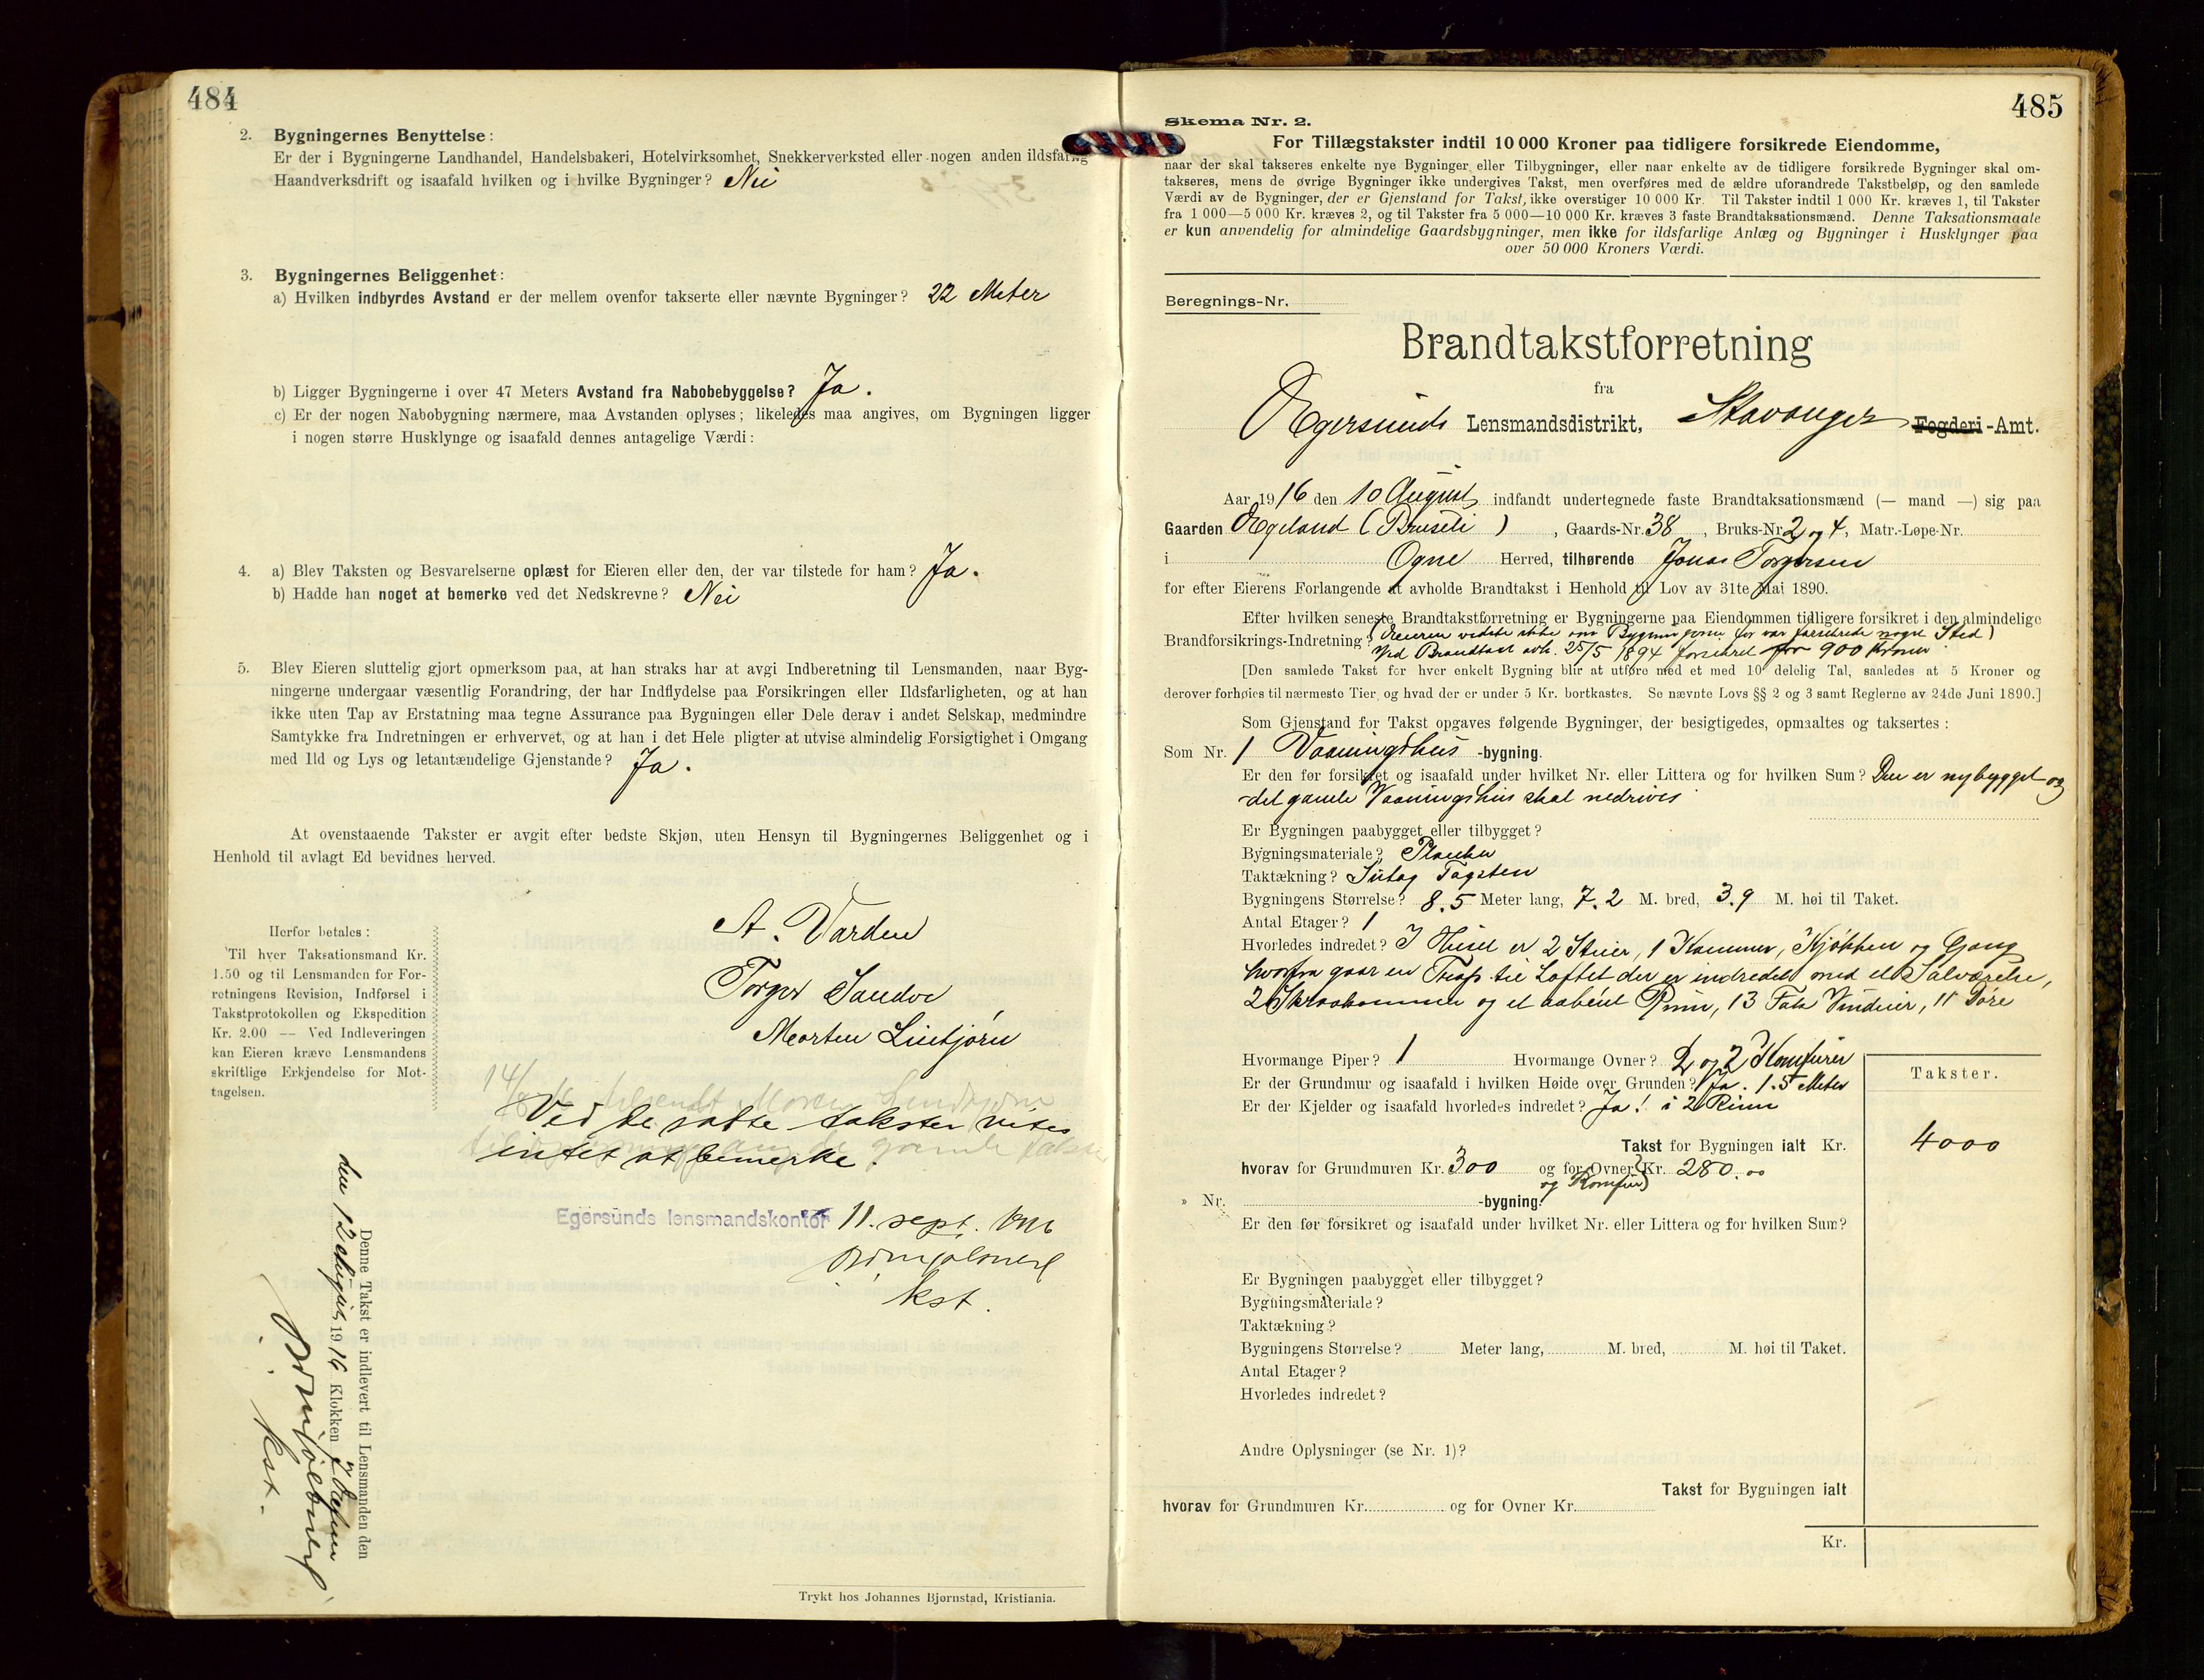 484
2. Bygningernes Benyttelse:
Er der i Bygningerne Landhandel, Handelsbakeri, Hotelvirksomhet, Snekkerverksted eller nogen anden ildsfarlig
Haandverksdrift og isaafald hvilken og i hvilke Bygninger? Nei
3. Bygningernes Beliggenhet:
a) Hvilken indbyrdes Avstand er der mellem ovenfor takserte eller nævnte Bygninger? 22 Meter
b) Ligger Bygningerne i over 47 Meters Avstand fra Nabobebyggelse? Ja.
c) Er der nogen Nabobygning nærmere, maa Avstanden oplyses; likeledes maa angives, om Bygningen ligger
i nogen større Husklynge og isaafald dennes antagelige Værdi:
4. a) Blev Taksten og Besvarelserne oplæst for Eieren eller den, der var tilstede for ham? Ja.
b) Hadde han noget at bemerke ved det Nedskrevne? Nei
5. Blev Eieren sluttelig gjort opmerksom paa, at han straks har at avgi Indberetning til Lensmanden, naar Byg-
ningerne undergaar væsentlig Forandring, der har Indflydelse paa Forsikringen eller Ildsfarligheten, og at han
ikke uten Tap av Erstatning maa tegne Assurance paa Bygningen eller Dele derav i andet Selskap, medmindre
Samtykke fra Indretningen er erhvervet, og at han i det Hele pligter at utvise almindelig Forsigtighet i Omgang
med Ild og Lys og letantændelige Gjenstande? Ja.
At ovenstaaende Takster er avgit efter bedste Skjøn, uten Hensyn til Bygningernes Beliggenhet og i
Henhold til avlagt Ed bevidnes herved.
A. Varden
Torger Sandve
Morten Lindtjørn
Herfor betales:
Til hver Taksationsmand Kr.
1.50 og til Lensmanden for For-
retningens Revision, Indførsel i
Takstprotokollen og Ekspedition
Kr. 2.00 — Ved Indleveringen
kan Eieren kræve Lensmandens
skriftlige Erkjendelse for Mot-
tagelsen.
14/8 16 tilsendt Morten Lindtjørn
Ved de satte takster vites
intet at bemerke.
Egersunds lensmandskontor 11. sept. 1916
kst.
Denne Takst er indlevert til Lensmanden den
den 12 August 1916 Klokken 7 Efterm
kst.
Trykt hos Johannes Bjørnstad, Kristiania.
485
Skema Nr. 2.
For Tillægstakster indtil 10 000 Kroner paa tidligere forsikrede Eiendomme,
naar der skal takseres enkelte nye Bygninger eller Tilbygninger, eller naar enkelte av de tidligere forsikrede Bygninger skal om-
takseres, mens de øvrige Bygninger ikke undergives Takst, men overføres med de ældre uforandrede Takstbeløp, og den samlede
Værdi av de Bygninger, der er Gjenstand for Takst, ikke overstiger 10 000 Kr. Til Takster indtil 1 000 Kr. kræves 1, til Takster
fra 1 000—5 000 Kr. kræves 2, og til Takster fra 5 000—10 000 Kr. kræves 3 faste Brandtaksationsmænd. Denne Taksationsmaate
er kun anvendelig for almindelige Gaardsbygninger, men ikke for ildsfarlige Anlæg og Bygninger i Husklynger paa
over 50 000 Kroners Værdi.
Beregnings-Nr.
Brandtakstforretning
fra
Egersunds Lensmandsdistrikt, Stavanger Fogderi-Amt.
Aar 1916 den 10 August indfandt undertegnede faste Brandtaksationsmænd (— mand —) sig paa
Gaarden Egeland (Bruseli), Gaards-Nr. 38, Bruks-Nr. 2 og 4, Matr.-Løpe-Nr.
i Ogne Herred, tilhørende Jonas Torgersen
for efter Eierens Forlangende at avholde Brandtakst i Henhold til Lov av 31te Mai 1890.
Efter hvilken seneste Brandtakstforretning er Bygningerne paa Eiendommen tidligere forsikret i den almindelige
Brandforsikrings-Indretning? (Eieren vidste ikke om Bygningerne før var forsikrede nogle Sted)
Ved Brandtakst avh. 25/5 1894 forsikret for 900 Kroner
[Den samlede Takst for hver enkelt Bygning blir at utføre med et med 10 delelig Tal, saaledes at 5 Kroner og
derover forhøies til nærmeste Tier, og hvad der er under 5 Kr. bortkastes. Se nævnte Lovs §§ 2 og 3 samt Reglerne av 24de Juni 1890.]
Som Gjenstand for Takst opgaves følgende Bygninger, der besigtigedes, opmaaltes og taksertes:
Som Nr. 1 Vaaningshus -bygning.
Er den før forsikret og isaafald under hvilket Nr. eller Littera og for hvilken Sum? Den er nybygget og
det gamle Vaaningshus skal nedrives
Er Bygningen paabygget eller tilbygget?
Bygningsmateriale? Planker
Taktækning? Sutag Tagsten
Bygningens Størrelse? 8.5 Meter lang, 7.2 M. bred, 3.9 M. høi til Taket.
Antal Etager? 1
Hvorledes indredet? I Huset er 2 Stuer, 1 Kammer, Kjøkken og Gang
hvorfra gaar en Trap til Loftet der er indredet med et Salværelse,
2 Skraakammer og et aabent Rum, 13 Fak Vinduer, 11 Døre
Hvormange Piper? 1 Hvormange Ovner? 2 og 2 Komfurer
Er der Grundmur og isaafald i hvilken Høide over Grunden? Ja. 1.5 Meter
Er der Kjelder og isaafald hvorledes indredet? Ja! i 2 Rum
Takster.
Takst for Bygningen ialt Kr. 4000
hvorav for Grundmuren Kr. 300 og for Ovner Kr. 280.00
og Komfur
» Nr. -bygning.
Er den før forsikret og isaafald under hvilket Nr. eller Littera og for hvilken Sum?
Er Bygningen paabygget eller tilbygget?
Bygningsmateriale?
Taktækning?
Bygningens Størrelse? Meter lang, M. bred, M. høi til Taket.
Antal Etager?
Hvorledes indredet?
Andre Oplysninger (se Nr. 1)?
Takst for Bygningen ialt
hvorav for Grundmuren Kr. og for Ovner Kr.
Kr.